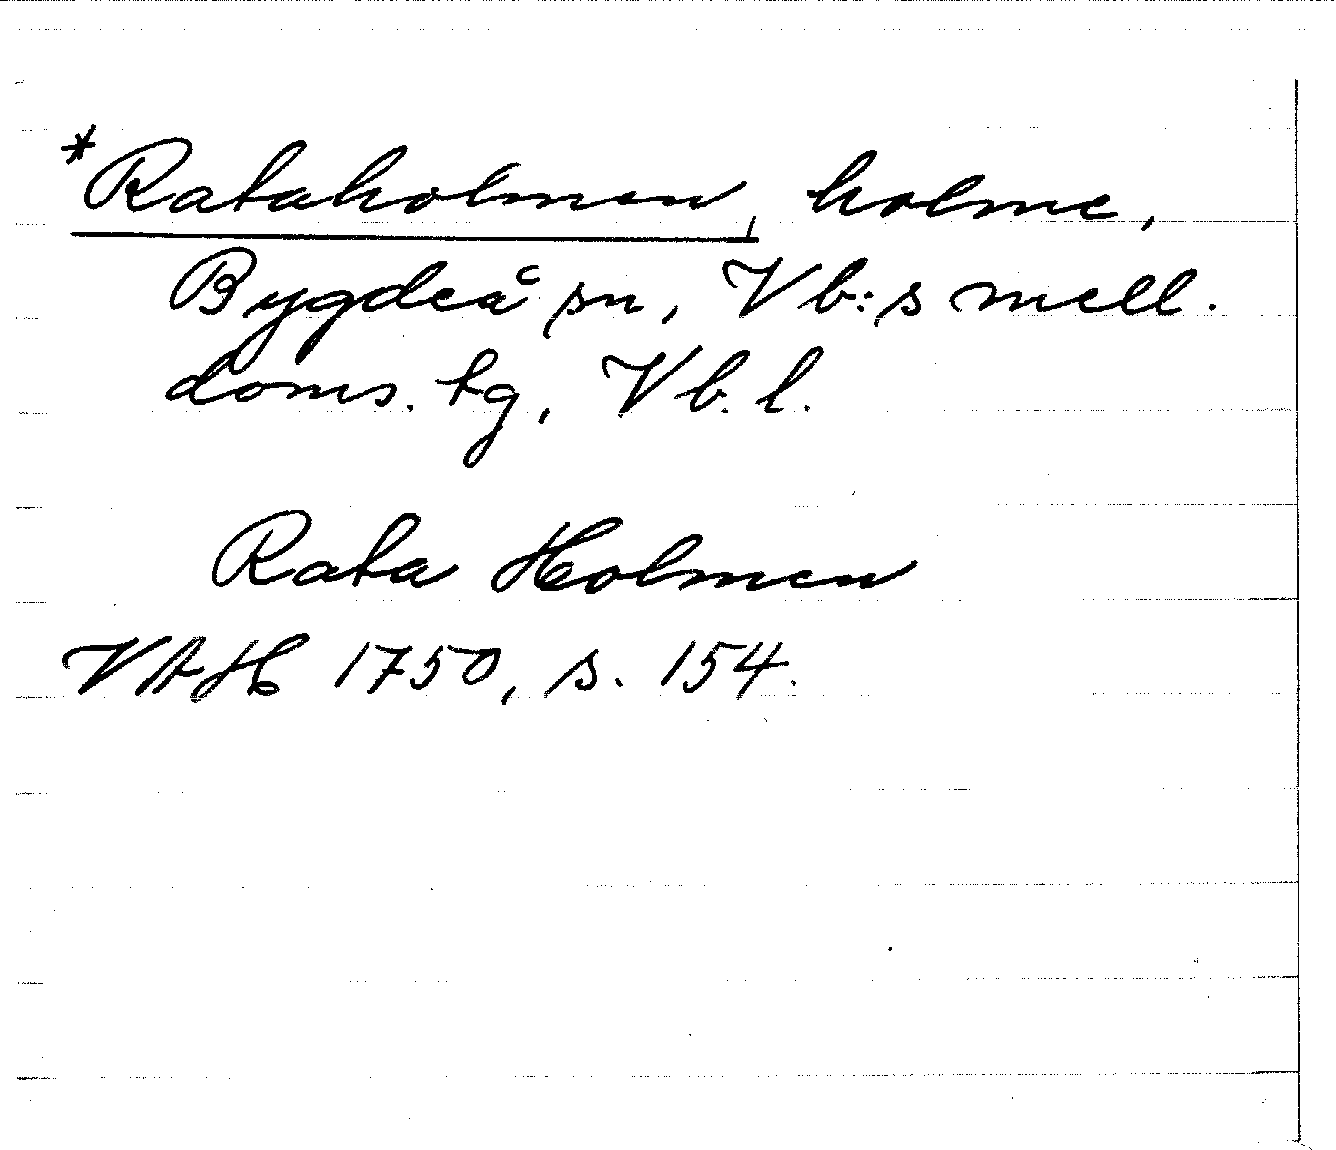 *Rataholmen, holme,
Bygdeå sn, Vb:s mell.
doms. tg, Vb. l.
Rata Holmen
VAH 1750, s. 154.